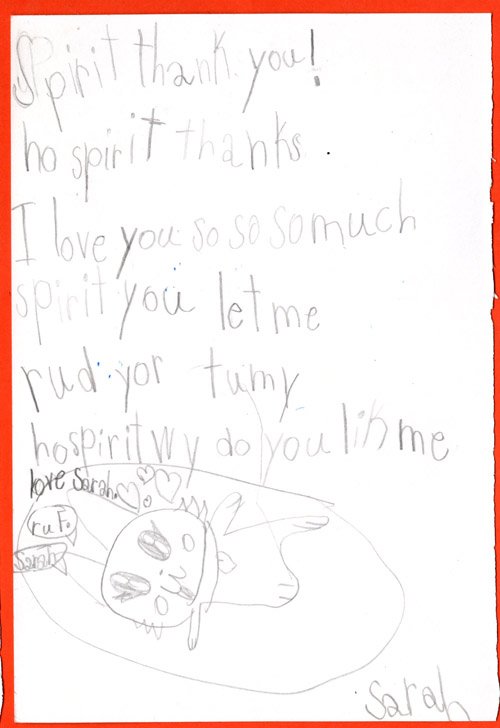 Spirit thank you!
ho spirit thanks.
I love you so so so much
spirit you let me
rud yor tumy
ho spirit wy do you lik me
love Sarah.
ruf.
Sarah
Sarah